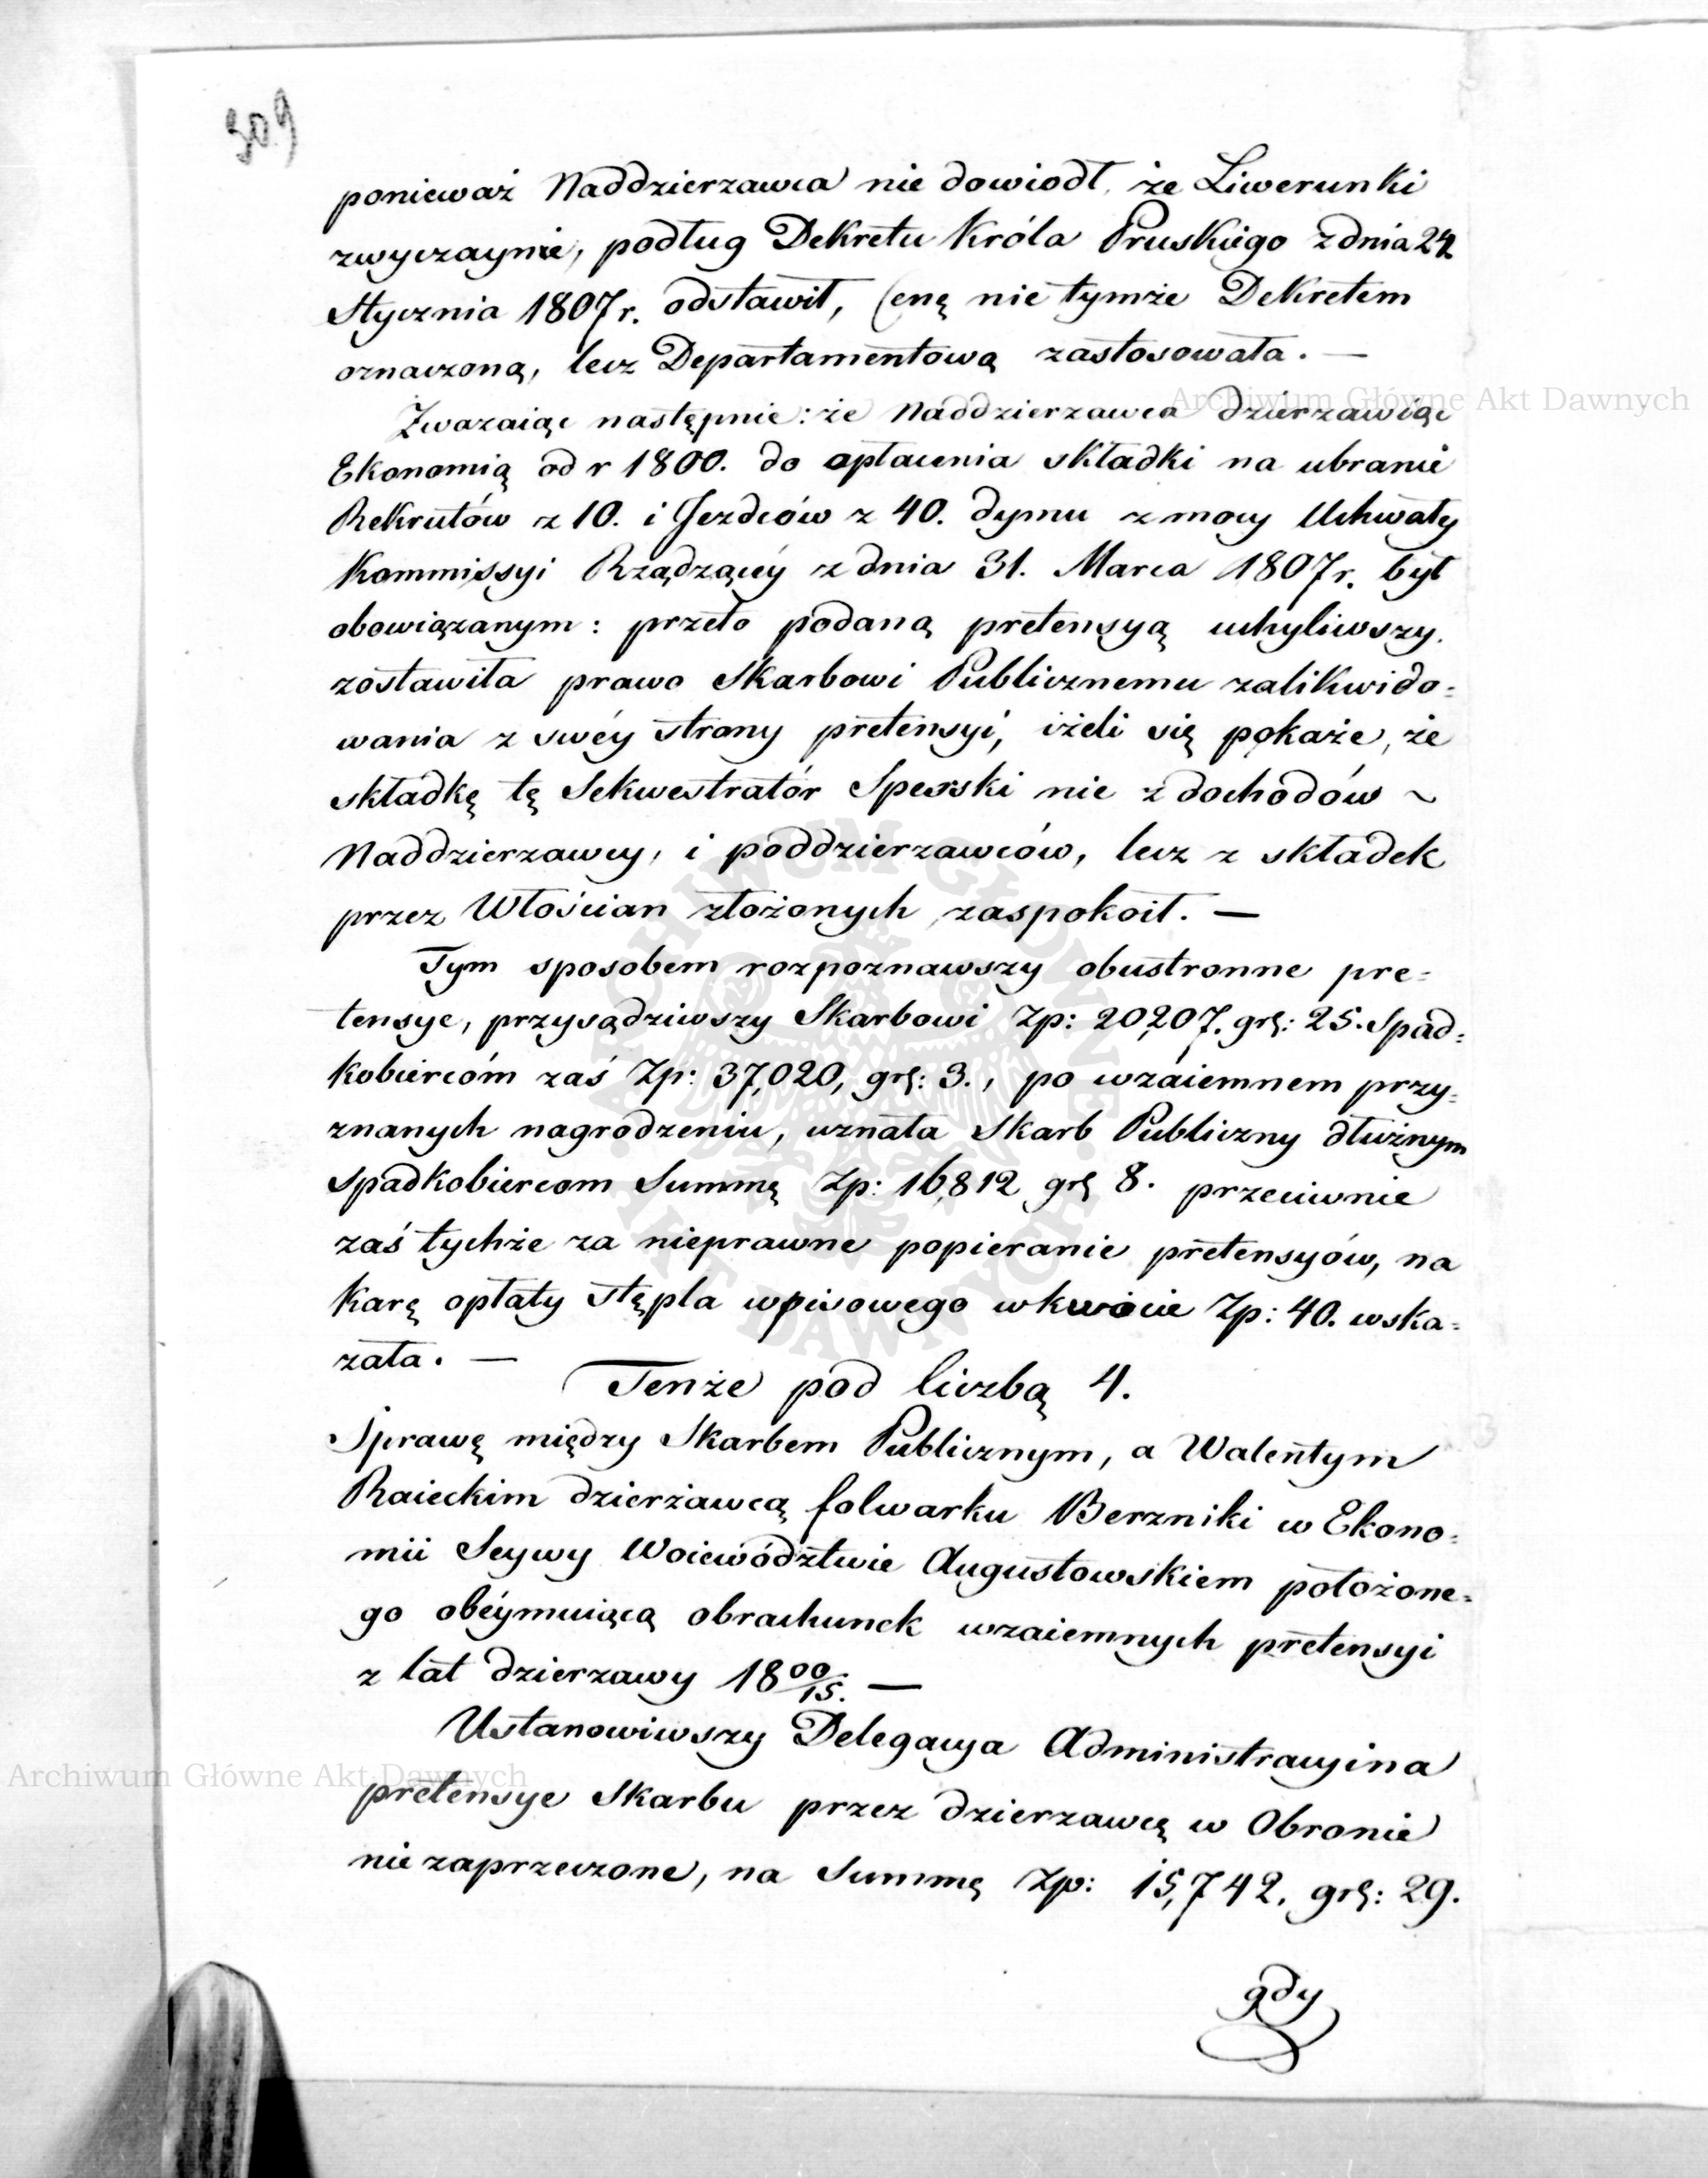 309
ponieważ Naddzierzawca nie dowiodł, że Liwerunki
zwyczaynie, podług Dekretu Króla Pruskiego z dnia 24
Stycznia 1807 r. odstawił, Cenę nie tymże Dekretem
oznaczoną, lecz Departamentową zastosowała. —
Archiwum Główne Akt Dawnych
Zwazaiąc następnie: że Naddzierzawca dzierzawiąc
Ekonomią od r 1800. do opłacenia składki na ubranie
Rekrutów z 10. i Jezdców z 40. dymu z mocy Uchwały
Kommissyi Rządzącéy z dnia 31. Marca 1807 r. był
obowiązanym: przeto podaną pretensyą uchyliwszy.
zostawiła prawo Skarbowi Publicznemu zalikwido=
wania z swéy strony pretensyi, ieżeli się pokaże, że
składkę tę Sekwestratór Sperski nie z dochodów ~
Naddzierzawcy, i poddzierzawców, lecz z składek
przez Włościan złożonych zaspokoił. —
Tym sposobem rozpoznawszy obustronne pre=
tensye, przysądziwszy Skarbowi Zp: 20,207. gr: 25. Spad=
kobiercóm zaś Zp: 37,020, gr: 3., po wzáiemnem przy=
znanych nagrodzeniu, uznała Skarb Publiczny dłużnym
Spadkobiercom Summę Zp: 16,812 gr 8. przeciwnie
zaś tychże za nieprawne popieranie pretensyów, na
karę opłaty stępla wpisowego w kwocie Zp: 40. wska=
zała. —
Tenże pod liczbą 4.
Sprawę między Skarbem Publicznym, a Walentym
Raieckim dzierżawcą folwarku Berzniki w Ekono=
mii Seywy Woiewództwie Augustowskiem położone=
go obéymuiącą obrachunek wzaiemnych pretensyi
z lat dzierzawy 18 00/15. —
Ustanowiwszy Delegacya Administracyina
Archiwum Główne Akt Dawnych
pretensye Skarbu przez dzierzawcę w Obronie
nie zaprzeczone, na Summę Zp: 15,742. gr: 29.
gdy
ARCHIWUM GŁÓWNE AKT DAWNYCH